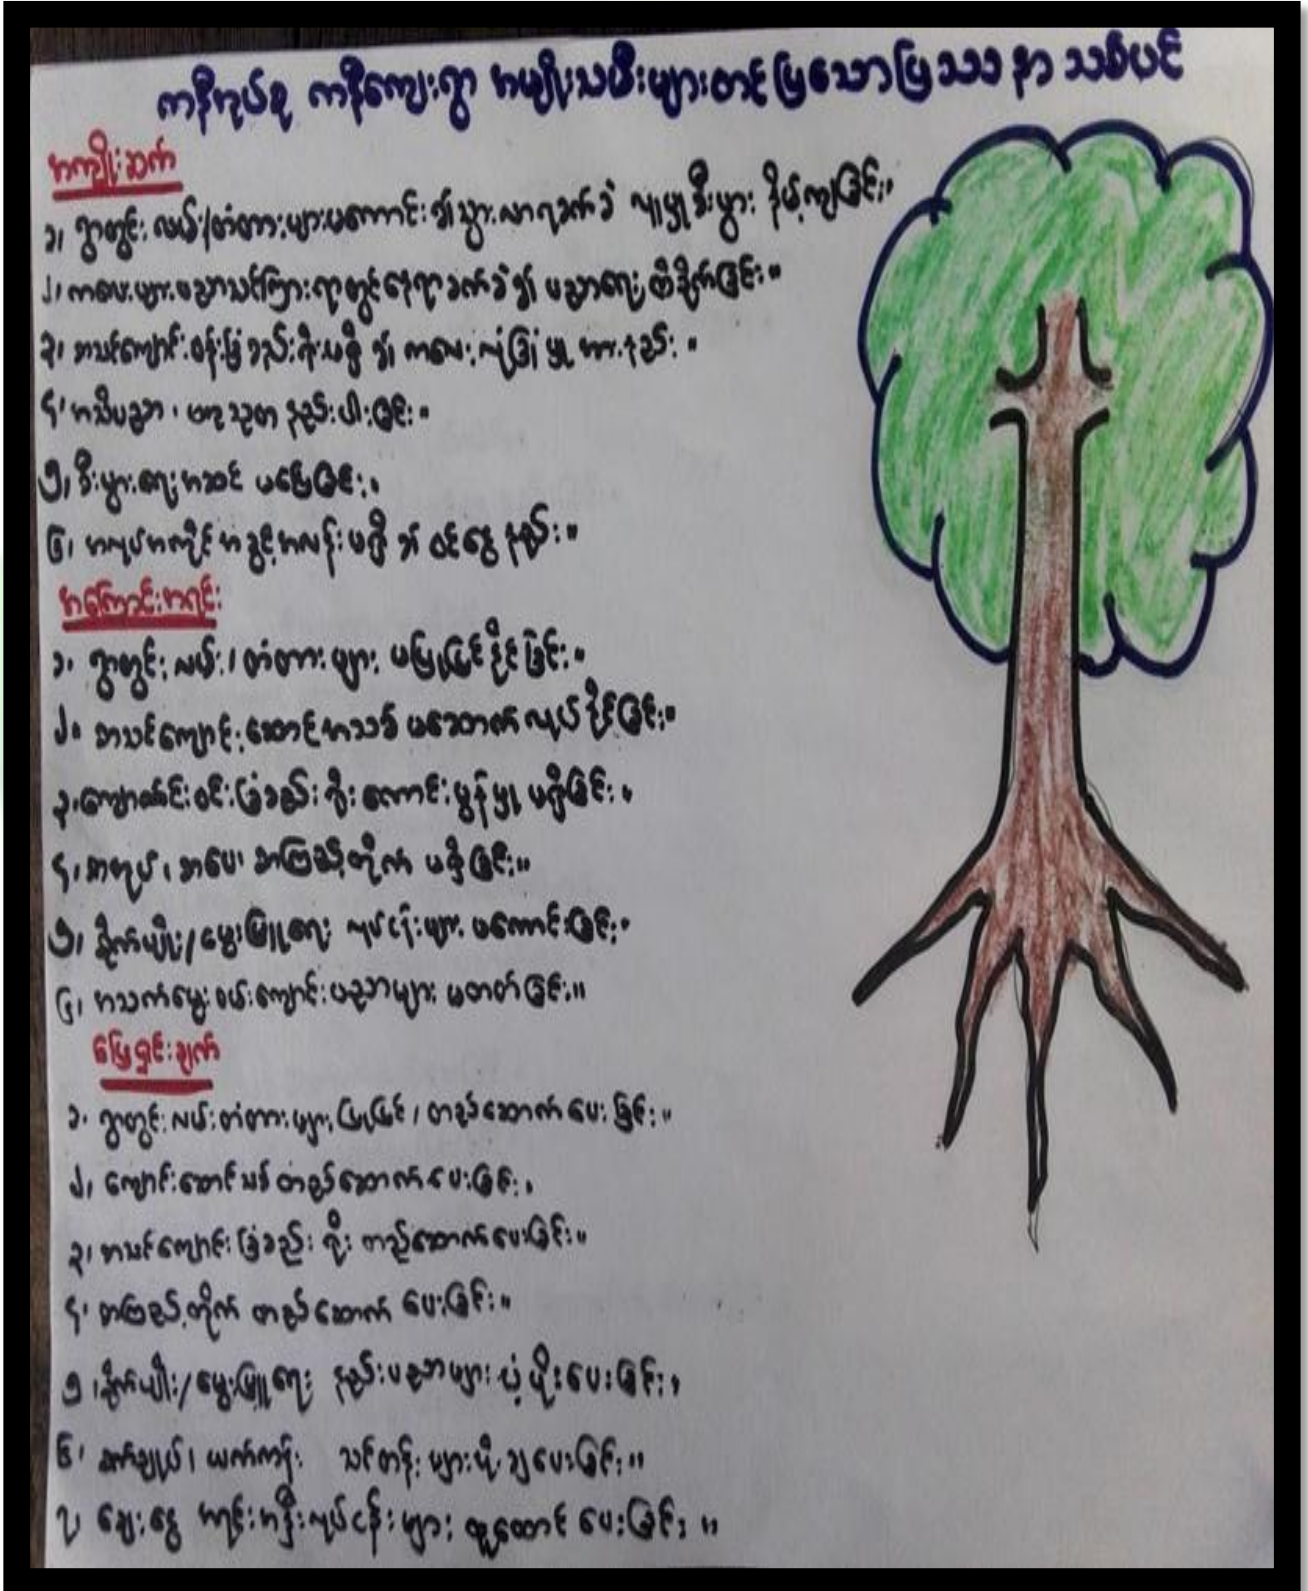 ကနီအုပ်စု ကနီကျေးရွာ အမျိုးသမီးများတင်ပြသောပြဿနာ သစ်ပင်
အကျိုးဆက်
၁၊ ရွာတွင်း လမ်း/တံတားများမကောင်း၍သွားလာရခက်ခဲ လူမှုစီးပွား နိမ့်ကျခြင်း။
၂၊ ကလေးများပညာသင်ကြားရာတွင်နေရာခက်ခဲ၍ ပညာရေးထိခိုက်ခြင်း။
၃၊ စာသင်ကျောင်းဝန်းခြံစည်းရိုးမရှိ၍ ကလေးလုံခြုံမှု အားနည်း။
၄၊ အသိပညာ၊ ဗဟုသုတ နည်းပါးခြင်း။
၅၊ စီးပွားရေးအဆင် မပြေခြင်း။
၆၊ အလုပ်အကိုင်အခွင့်အလန်းမရှိ၍ ဝင်ငွေနည်း။
အကြောင်းအရင်း
၁၊ ရွာတွင်းလမ်း၊ တံတားများ မပြုပြင်နိုင်ခြင်း။
၂။ စာသင်ကျောင်းဆောင်အသစ် မဆောက်လုပ်နိုင်ခြင်း။
၃၊ကျောင်းဝင်းခြံစည်းရိုးကောင်းမွန်မှု မရှိခြင်း။
၄၊စာအုပ်၊ စာပေ၊ စာကြည့်တိုက် မရှိခြင်း။
၅၊ စိုက်ပျိုး/မွေးမြူရေး လုပ်ငန်းများ မကောင်းခြင်း။
၆၊ အသက်မွေးဝမ်းကျောင်းပညာများ မတတ်ခြင်း။
ဖြေရှင်းချက်
၁၊ ရွာတွင်းလမ်းတံတားများပြုပြင်၊ တည်ဆောက်ပေးခြင်း။
၂၊ ကျောင်းဆောင်သစ်တည်ဆောက်ပေးခြင်း။
၃၊ စာသင်ကျောင်းခြံစည်းရိုး တည်ဆောက်ပေးခြင်း။
၄၊ စာကြည့်တိုက် တည်ဆောက် ပေးခြင်း။
၅၊စိုက်ပျိုး/မွေးမြူရေး နည်းပညာများပံ့ပိုးပေးခြင်း။
၆၊ စက်ချုပ်၊ ယက်ကန်း သင်တန်းများပို့ချပေးခြင်း။
၇၊ ချေးငွေ အရင်းအနှီးလုပ်ငန်းများ ထူထောင်ပေးခြင်း။